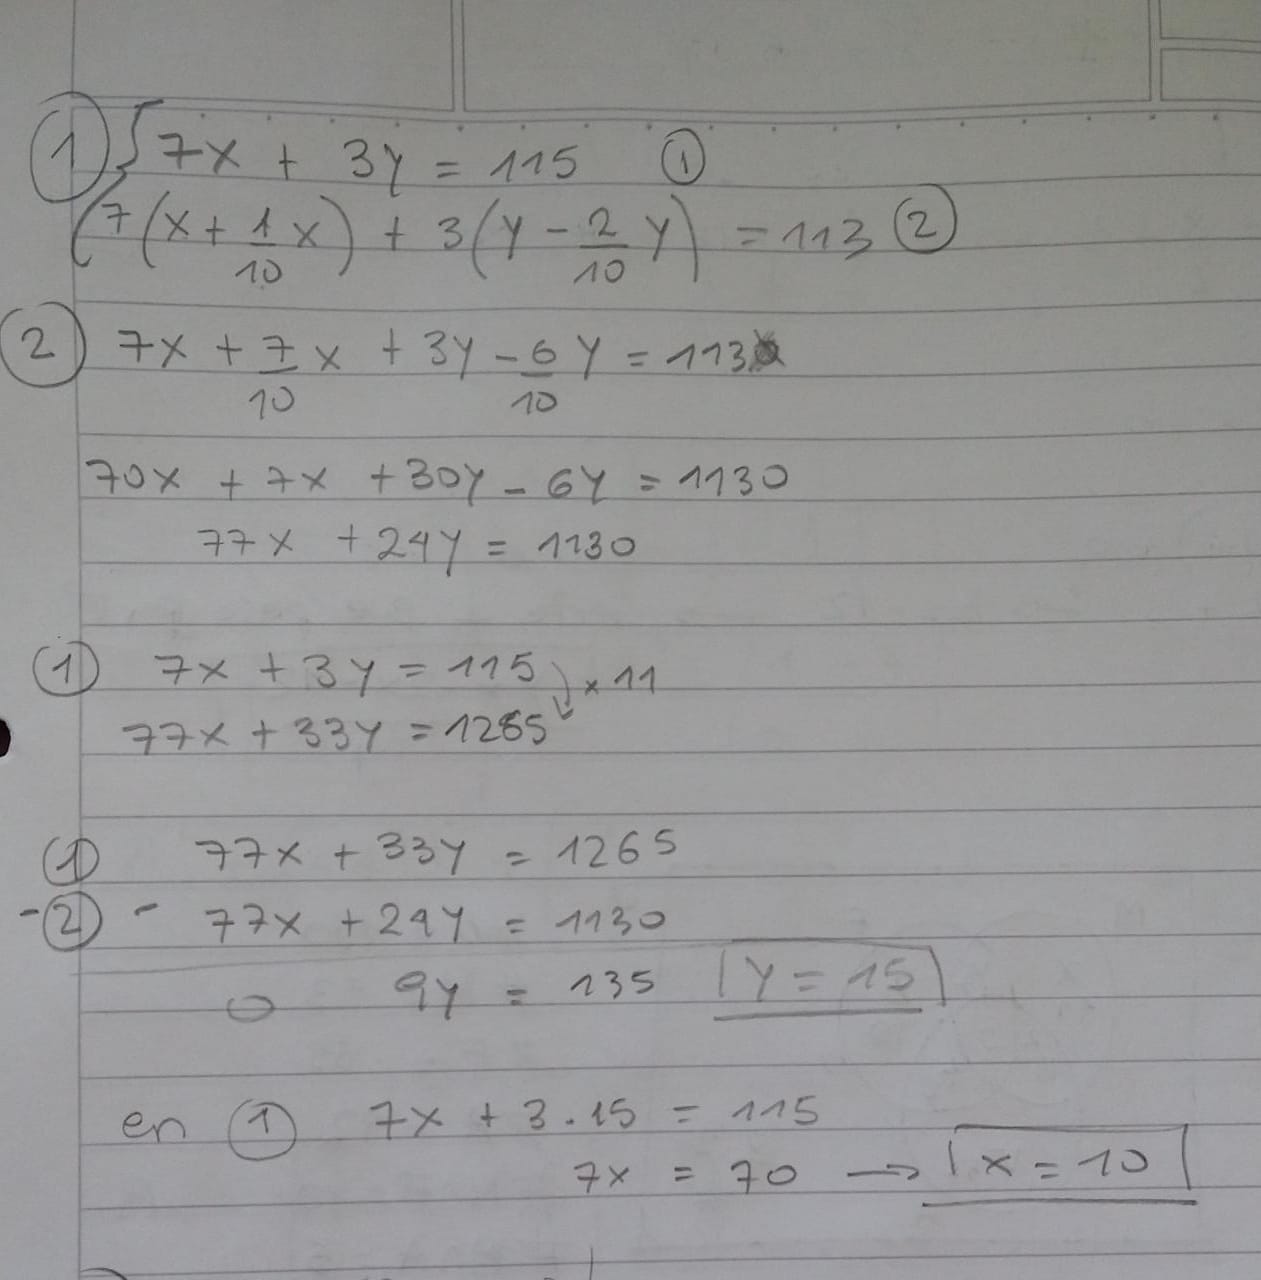 ① { 7x + 3y = 115 ①
7(x + 1/10 x) + 3(y - 2/10 y) = 113 ②
② 7x + 7/10 x + 3y - 6/10 y = 113
70x + 7x + 30y - 6y = 1130
77x + 24y = 1130
① 7x + 3y = 115 ⤵ × 11
77x + 33y = 1265
① 77x + 33y = 1265
-② - 77x + 24y = 1130
0 9y = 135 y = 15
en ① 7x + 3 · 15 = 115
7x = 70 → x = 10